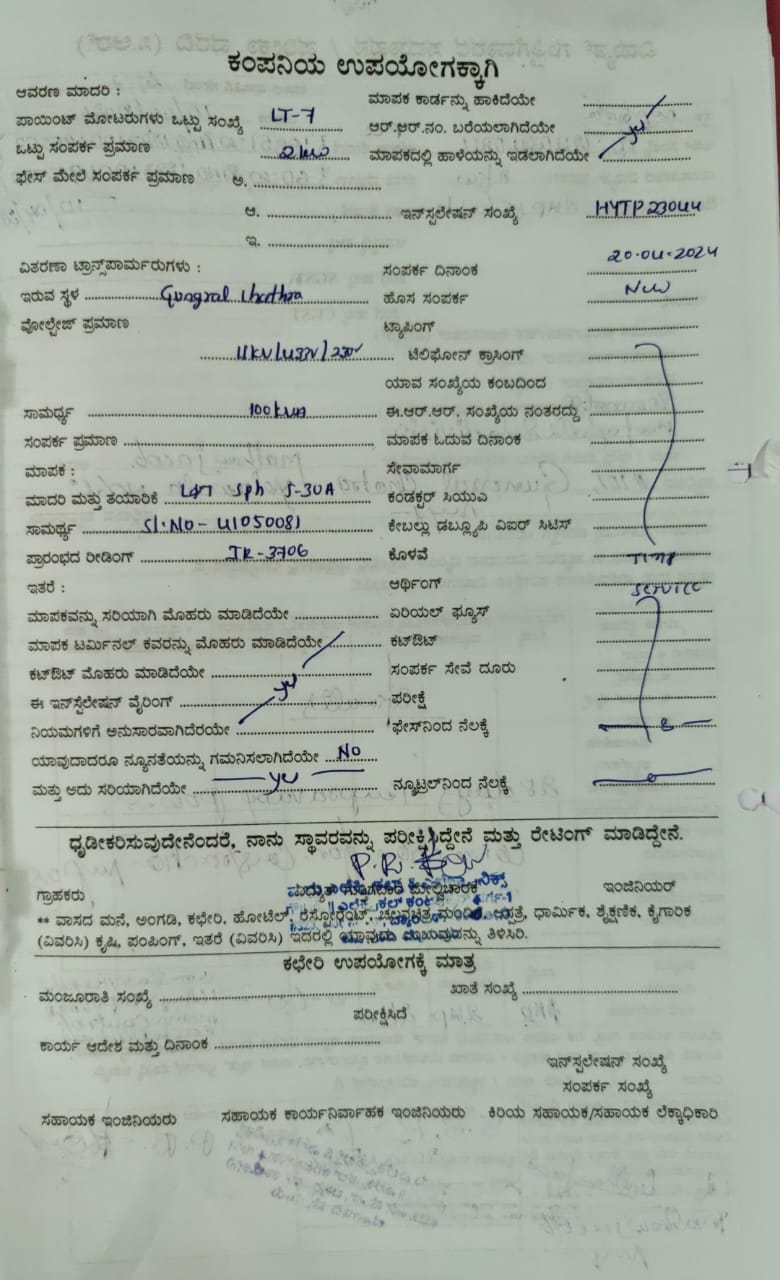 ಕಂಪನಿಯ ಉಪಯೋಗಕ್ಕಾಗಿ
ಆವರಣ ಮಾದರಿ :
ಮಾಪಕ ಕಾರ್ಡನ್ನು ಹಾಕಿದೆಯೇ
ಪಾಯಿಂಟ್ ಮೋಟರುಗಳು ಒಟ್ಟು ಸಂಖ್ಯೆ LT-7
ಆರ್.ಆರ್.ನಂ. ಬರೆಯಲಾಗಿದೆಯೇ
ಒಟ್ಟು ಸಂಪರ್ಕ ಪ್ರಮಾಣ 2kw
ಮಾಪಕದಲ್ಲಿ ಹಾಳೆಯನ್ನು ಇಡಲಾಗಿದೆಯೇ
ಫೇಸ್ ಮೇಲೆ ಸಂಪರ್ಕ ಪ್ರಮಾಣ ಅ.
ಆ. ಇನ್‌ಸ್ಪಲೇಷನ್ ಸಂಖ್ಯೆ HYTP23044
ಇ.
ವಿತರಣಾ ಟ್ರಾನ್ಸ್‌ಪಾರ್ಮರುಗಳು :
ಸಂಪರ್ಕ ದಿನಾಂಕ 20-04-2024
ಇರುವ ಸ್ಥಳ Gungral
ಹೊಸ ಸಂಪರ್ಕ New
ವೋಲ್ಟೇಜ್ ಪ್ರಮಾಣ
ಟ್ಯಾಪಿಂಗ್
11KV/433V/230V
ಟೆಲಿಫೋನ್ ಕ್ರಾಸಿಂಗ್
ಯಾವ ಸಂಖ್ಯೆಯ ಕಂಬದಿಂದ
ಸಾಮರ್ಥ್ಯ 100kva
ಈ.ಆರ್.ಆರ್. ಸಂಖ್ಯೆಯ ನಂತರದ್ದು
ಸಂಪರ್ಕ ಪ್ರಮಾಣ
ಮಾಪಕ ಓದುವ ದಿನಾಂಕ
ಮಾಪಕ :
ಸೇವಾಮಾರ್ಗ
ಮಾದರಿ ಮತ್ತು ತಯಾರಿಕೆ L&T Sph 5-30A
ಕಂಡಕ್ಟರ್ ಸಿಯುಎ
ಸಾಮರ್ಥ್ಯ Sl.No- 41050081
ಕೇಬಲ್ಲು ಡಬ್ಲ್ಯೂಪಿ ವಿಐರ್ ಸಿಟಿಸ್
ಪ್ರಾರಂಭದ ರೀಡಿಂಗ್ IR-3706
ಕೊಳವೆ Temp
ಇತರೆ :
ಆರ್ಥಿಂಗ್ Service
ಮಾಪಕವನ್ನು ಸರಿಯಾಗಿ ಮೊಹರು ಮಾಡಿದೆಯೇ
ಏರಿಯಲ್ ಫ್ಯೂಸ್
ಮಾಪಕ ಟರ್ಮಿನಲ್ ಕವರನ್ನು ಮೊಹರು ಮಾಡಿದೆಯೇ
ಕಟ್‌ಔಟ್
ಕಟ್‌ಔಟ್ ಮೊಹರು ಮಾಡಿದೆಯೇ
ಸಂಪರ್ಕ ಸೇವೆ ದೂರು
ಈ ಇನ್‌ಸ್ಪೆಲೇಷನ್ ವೈರಿಂಗ್
ಪರೀಕ್ಷೆ
ನಿಯಮಗಳಿಗೆ ಅನುಸಾರವಾಗಿದೆರಯೇ
ಫೇಸ್‌ನಿಂದ ನೆಲಕ್ಕೆ
ಯಾವುದಾದರೂ ನ್ಯೂನತೆಯನ್ನು ಗಮನಿಸಲಾಗಿದೆಯೇ No
ಮತ್ತು ಅದು ಸರಿಯಾಗಿದೆಯೇ yes
ನ್ಯೂಟ್ರಲ್‌ನಿಂದ ನೆಲಕ್ಕೆ
ಧೃಡೀಕರಿಸುವುದೇನೆಂದರೆ, ನಾನು ಸ್ಥಾವರವನ್ನು ಪರೀಕ್ಷಿಸಿದ್ದೇನೆ ಮತ್ತು ರೇಟಿಂಗ್ ಮಾಡಿದ್ದೇನೆ.
ಗ್ರಾಹಕರು ಮೇಲ್ವಿಚಾರಕ ಇಂಜಿನಿಯರ್
** ವಾಸದ ಮನೆ, ಅಂಗಡಿ, ಕಛೇರಿ, ಹೋಟೆಲ್, ರೆಸ್ಟೋರೆಂಟ್, ಚಲನಚಿತ್ರ ಮಂದಿರ, ಆಸ್ಪತ್ರೆ, ಧಾರ್ಮಿಕ, ಶೈಕ್ಷಣಿಕ, ಕೈಗಾರಿಕ
(ವಿವರಿಸಿ) ಕೃಷಿ, ಪಂಪಿಂಗ್, ಇತರೆ (ವಿವರಿಸಿ) ಇದರಲ್ಲಿ ಯಾವುದು ಎಂಬುವುದನ್ನು ತಿಳಿಸಿರಿ.
ಕಛೇರಿ ಉಪಯೋಗಕ್ಕೆ ಮಾತ್ರ
ಮಂಜೂರಾತಿ ಸಂಖ್ಯೆ ಖಾತೆ ಸಂಖ್ಯೆ
ಪರೀಕ್ಷಿಸಿದೆ
ಕಾರ್ಯ ಆದೇಶ ಮತ್ತು ದಿನಾಂಕ
ಇನ್‌ಸ್ಪಲೇಷನ್ ಸಂಖ್ಯೆ
ಸಂಪರ್ಕ ಸಂಖ್ಯೆ
ಸಹಾಯಕ ಇಂಜಿನಿಯರು ಸಹಾಯಕ ಕಾರ್ಯನಿರ್ವಾಹಕ ಇಂಜಿನಿಯರು ಕಿರಿಯ ಸಹಾಯಕ/ಸಹಾಯಕ ಲೆಕ್ಕಾಧಿಕಾರಿ